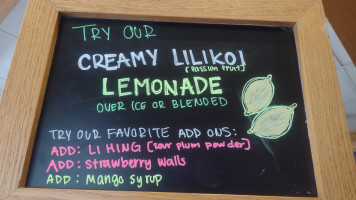 TRY OUR
CREAMY LILIKOI
[Passion Fruit]
LEMONADE
OVER ICE OR BLENDED
TRY OUR FAVORITE ADD ONS:
ADD: LI HING [sour plum powder]
ADD: Strawberry Walls
ADD: Mango Syrup